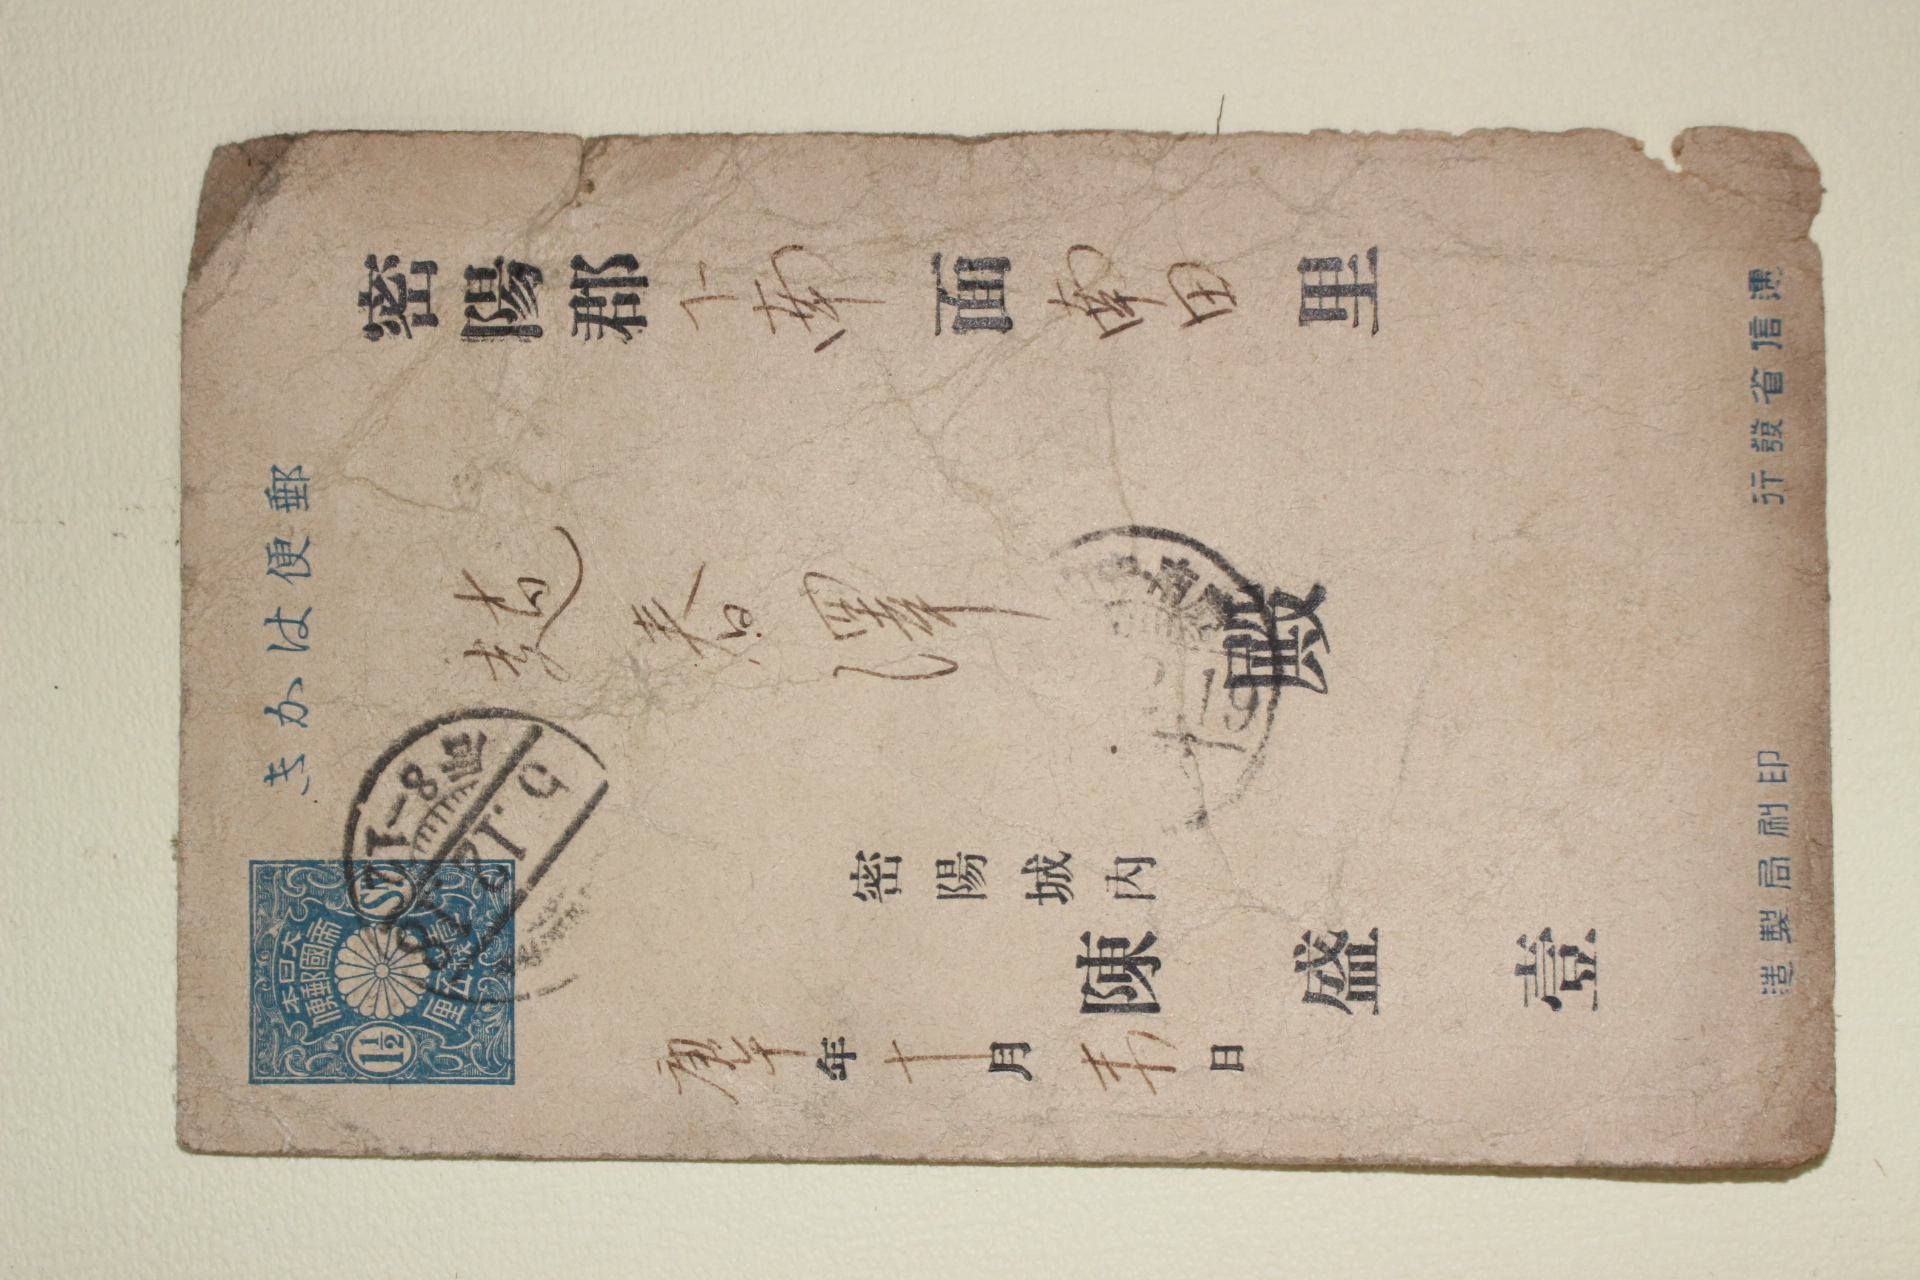 郵便はかき
大日本
帝國郵便
1½ Sn.
壹錢五厘
密陽郡下南面南田里
趙春澤殿
密陽城内
陳盛壹
庚午年十月 日
遞信省發行
印刷局製造